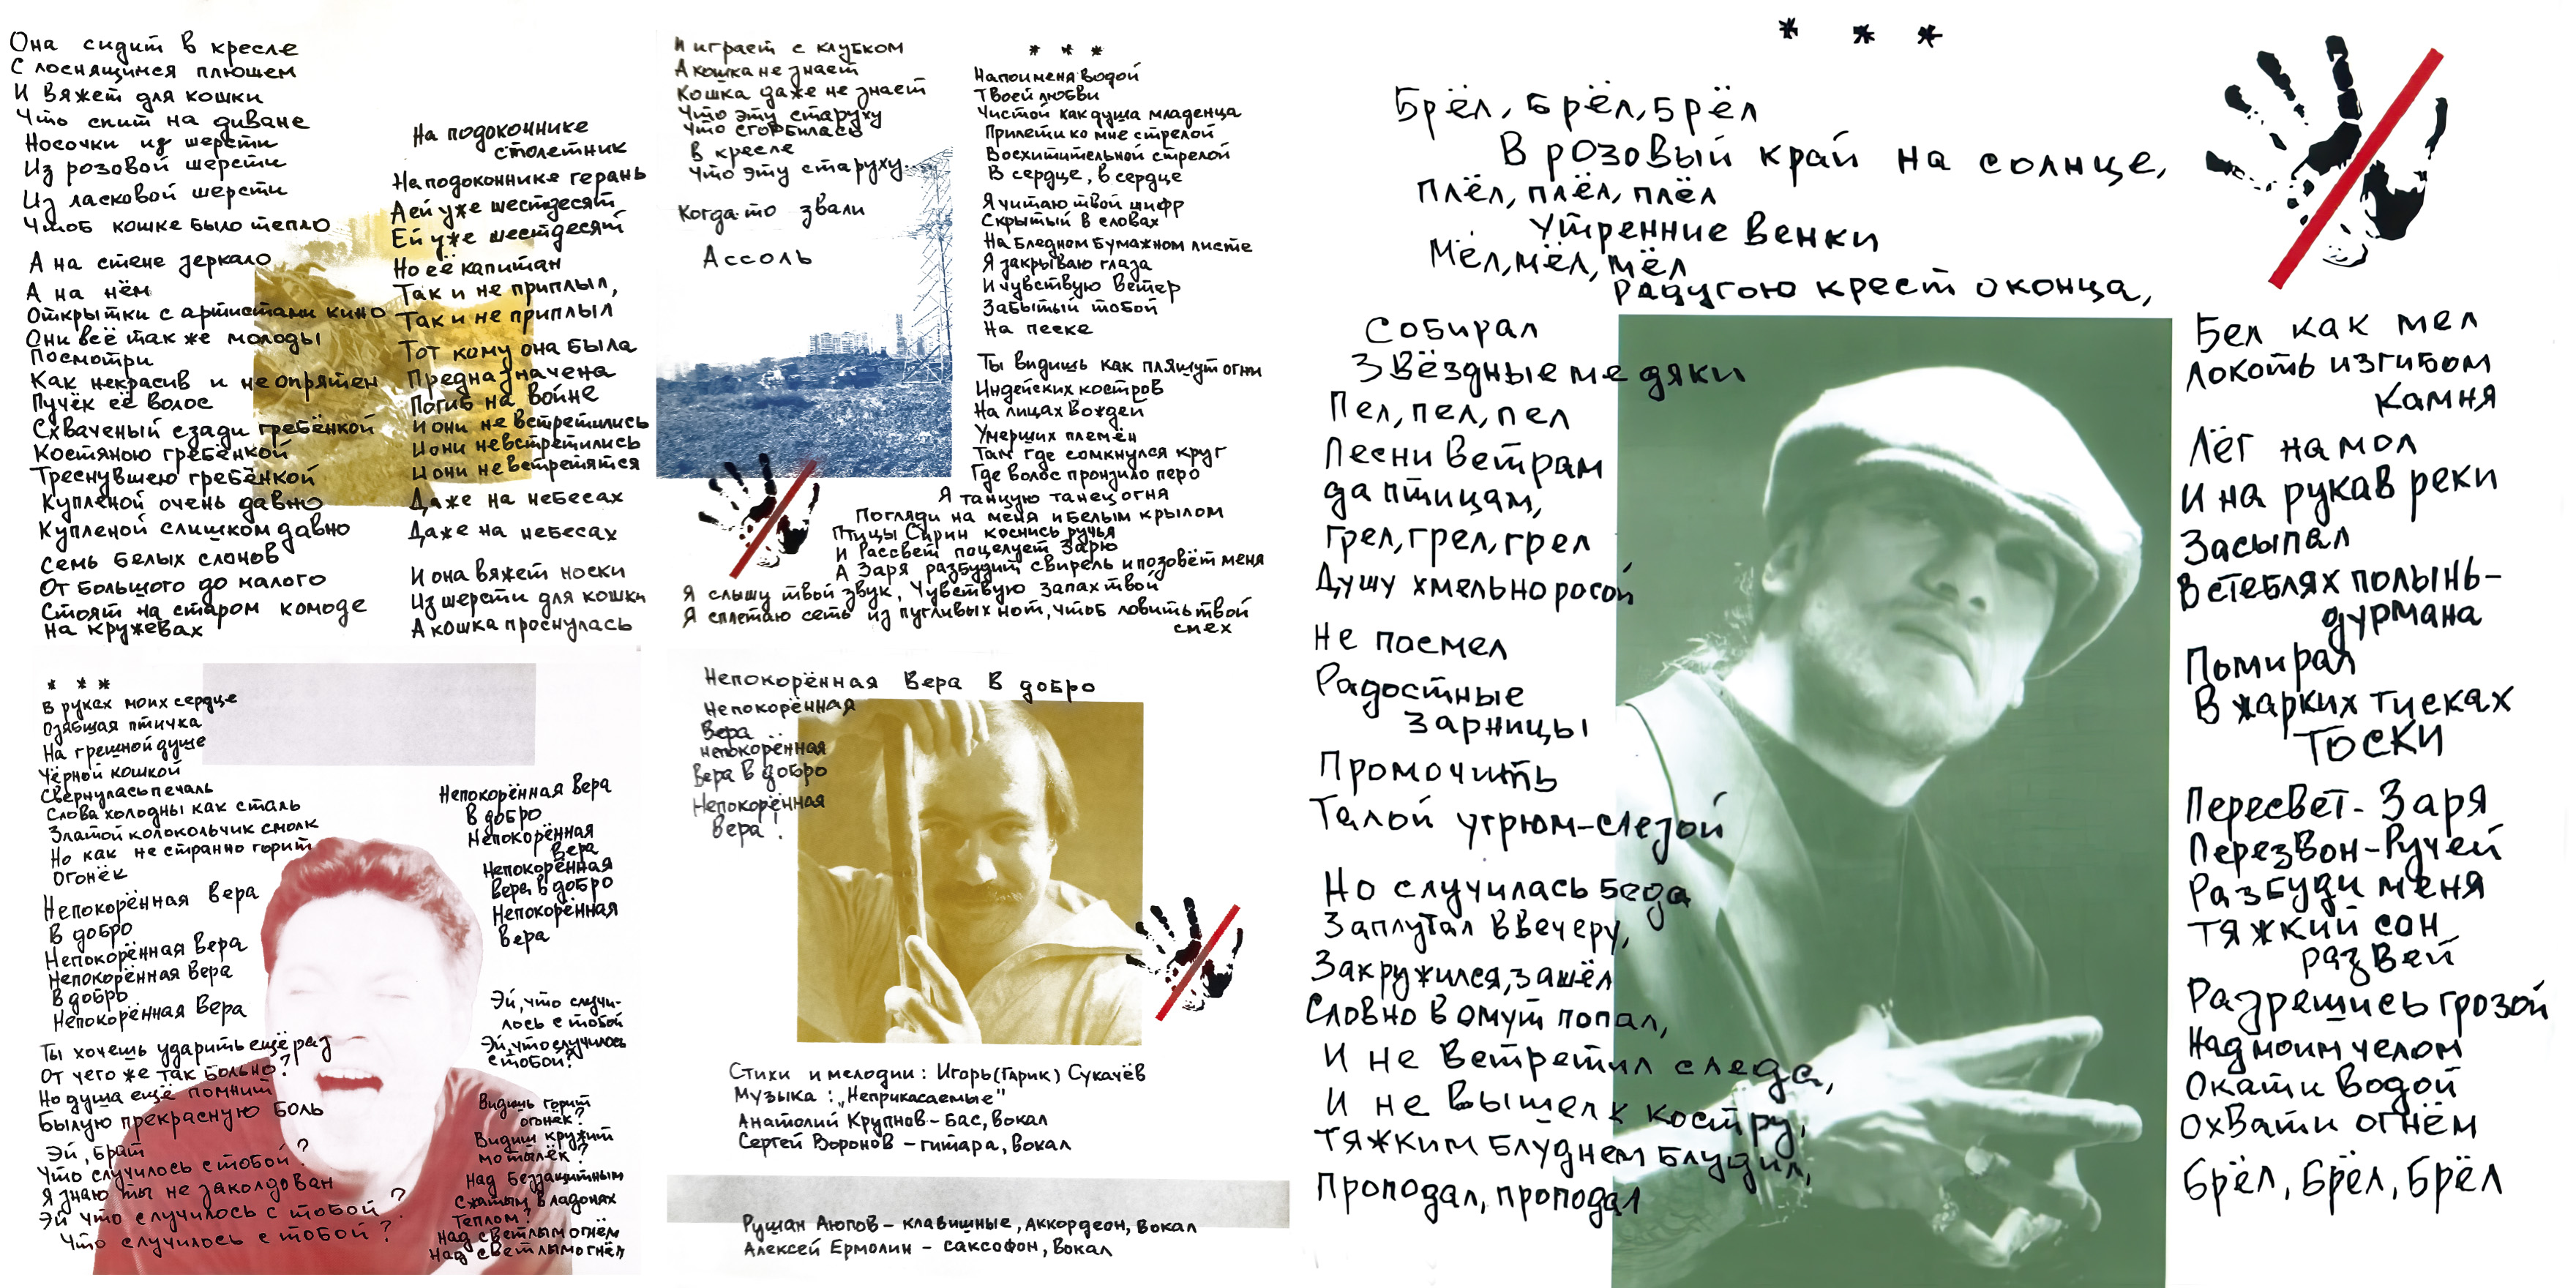 Она сидит в кресле
С лоснящимся плюшем
И вяжет для кошки
Что спит на диване
Носочки из шерсти
Из розовой шерсти
Из ласковой шерсти
Чтоб кошке было тепло
А на стене зеркало
А на нём
Открытки с артистами кино
Они всё так же молоды
Посмотри
Как некрасив и неопрятен
Пучёк её волос
Схваченый сзади гребёнкой
Костяною гребёнкой
Треснувшею гребёнкой
Купленой очень давно
Купленой слишком давно
Семь белых слонов
От большого до малого
Стоят на старом комоде
На кружевах
На подоконнике
столетник
На подоконнике герань
А ей уже шестдесят
Ей уже шестдесят
Но её капитан
Так и не приплыл,
Так и не приплыл
Тот кому она была
Предназначена
Погиб на войне
И они не встретились
И они не встретились
И они не встретятся
Даже на небесах
Даже на небесах
И она вяжет носки
Из шерсти для кошки
А кошка проснулась
И играет с клубком
А кошка не знает
Кошка даже не знает
Что эту старуху
Что сгорбилась
В кресле
Что эту старуху...
Когда-то звали
Ассоль
* * *
Напои меня водой
Твоей любви
Чистой как душа младенца
Прилети ко мне стрелой
Восхитительной стрелой
В сердце, в сердце
Я читаю твой шифр
Скрытый в словах
На бледном бумажном листе
Я закрываю глаза
И чувствую ветер
Забытый тобой
На песке
Ты видишь как пляшут огни
Индейских костров
На лицах вождей
Умерших племён
Там где сомкнулся круг
Где волос пронзило перо
Я танцую танец огня
Погляди на меня и белым крылом
Птицы Сирин коснись ручья
И Рассвет поцелует Зарю
А Заря разбудит свирель и позовёт меня
Я слышу твой звук, Чувствую запах твой
Я сплетаю сеть из пугливых нот, чтоб ловить твой
смех
* * *
В руках моих сердце
Озябшая птичка
На грешной душе
Чёрной кошкой
Свернулась печаль
Слова холодны как сталь
Златой колокольчик смолк
Но как не странно горит
Огонёк
Непокорённая Вера
В добро
Непокорённая Вера
Непокорённая Вера
В добро
Непокорённая Вера
Ты хочешь ударить ещё раз
От чего же так больно?
Но душа ещё помнит
Былую прекрасную боль
Эй, брат
Что случилось с тобой?
Я знаю ты не заколдован
Эй что случилось с тобой?
Что случилось с тобой?
Непокорённая Вера
В добро
Непокорённая
Вера
Непокорённая
Вера в добро
Непокорённая
Вера
Эй, что случи-
лось с тобой
Эй, что случилось
с тобой?
Видишь горит
огонёк?
Видиш кружит
мотылёк?
Над беззащитным
Сжатым в ладонях
Теплом?
Над светлым огнём
Над светлым огнём
Непокорённая Вера в добро
Непокорённая
Вера
Непокорённая
Вера в добро
Непокорённая
Вера!
Стихи и мелодии: Игорь (Гарик) Сукачёв
Музыка: „Неприкасаемые"
Анатолий Крупнов - бас, вокал
Сергей Воронов - гитара, вокал
Рушан Аюпов - клавишные, аккордеон, вокал
Алексей Ермолин - саксофон, вокал
* * *
Брёл, брёл, брёл
В розовый край на солнце,
Плёл, плёл, плёл
Утренние венки
Мёл, мёл, мёл
Радугою крест оконца,
Собирал
Звёздные медяки
Пел, пел, пел
Песни ветрам
да птицам,
Грел, грел, грел
Душу хмельно росой
Не посмел
Радостные
Зарницы
Промочить
Талой угрюм-слезой
Но случилась беда
Заплутал ввечеру,
Закружился, зашёл
Словно в омут попал,
И не встретил следа,
И не вышел к костру,
Тяжким блуднем блудил,
Проподал, проподал
Бел как мел
Локоть изгибом
Камня
Лёг на мол
И на рукав реки
Засыпал
В стеблях полынь-
дурмана
Помирал
В жарких тисках
Тоски
Пересвет-Заря
Перезвон-Ручей
Разбуди меня
Тяжкий сон
развей
Разрешись грозой
Над моим челом
Окати водой
Охвати огнём
Брёл, брёл, брёл